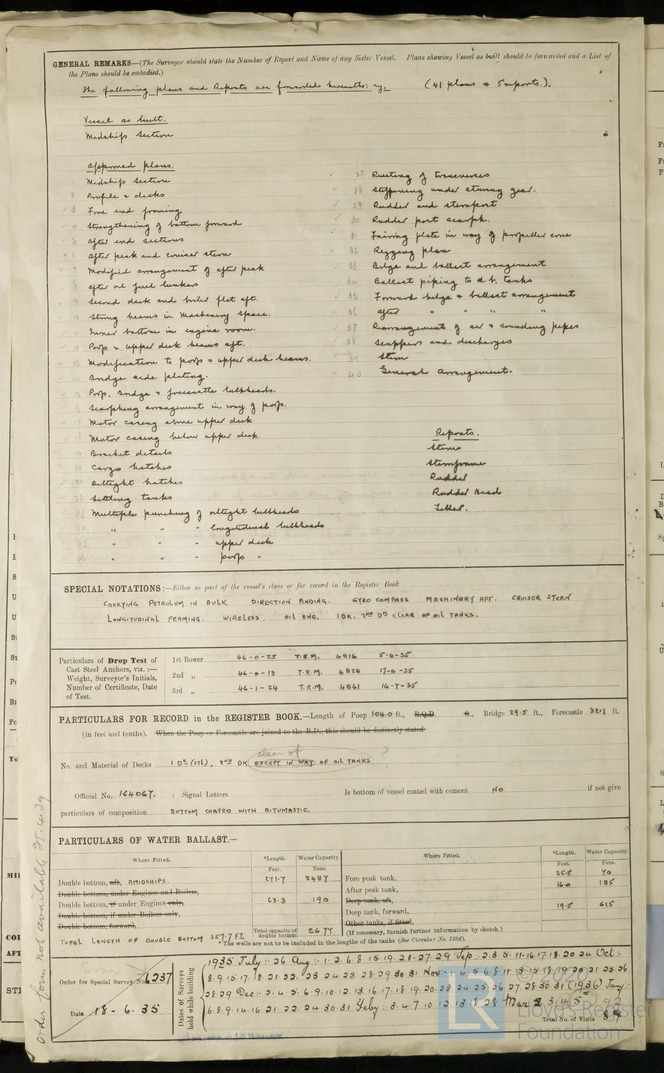 GENERAL REMARKS—(The Surveyor should state the Number of Report and Name of any Sister Vessel. Plans showing Vessel as built should be forwarded and a List of
the Plans should be embodied.)
The following plans and Reports are forwarded herewith: viz- (41 plans & 5 reports).
Vessel as built.
Midship Section
Approved plans.
Midship Section
Profile & decks
Fore end framing
Strengthening of bottom forward
After end sections
After peak and cruiser stern
Modified arrangement of after peak
After oil fuel bunkers
Second deck and boiler flat aft.
Strong beams in Machinery space.
Inner bottom in engine room.
Poop & upper deck beams aft.
Modification to poop & upper deck beams.
Bridge side plating.
Poop, Bridge & forecastle bulkheads.
Scarphing arrangement in way of poop.
Motor casing above upper deck
Motor casing below upper deck
Bracket details
Cargo hatches
Oiltight hatches
Settling tanks
Multiple punching of oiltight bulkheads
" " " longitudinal bulkheads
" " " upper deck
" " " poop "
27 Riveting of transverses
28 Stiffening under steering gear.
29 Rudder and sternpost
30 Rudder post scarph.
31 Fairing plate in way of propeller cone
32 Rigging plan
33 Bilge and ballast arrangement
34 Ballast piping to d.b. tanks
35 Forward bilge & ballast arrangement
36 After " " " "
37 Rearrangement of air & sounding pipes
38 Scuppers and discharges
39 Stem
40 General Arrangement.
Reports.
Stem
Sternframe
Rudder
Rudder Head
Tiller.
SPECIAL NOTATIONS:—Either as part of the vessel's class or for record in the Register Book
CARRYING PETROLEUM IN BULK DIRECTION FINDING. GYRO COMPASS MACHINERY AFT. CRUISER STERN
LONGITUDINAL FRAMING. WIRELESS. OIL ENG. 1 DK. 2ND DK CLEAR OF OIL TANKS.
Particulars of Drop Test of
Cast Steel Anchors, viz.:—
Weight, Surveyor's Initials,
Number of Certificate, Date
of Test.
1st Bower 46-0-25 T.R.M. 4816 5-4-35
2nd " 46-0-13 T.R.M. 4824 17-4-35
3rd " 46-1-24 T.R.M. 4861 16-7-35
PARTICULARS FOR RECORD in the REGISTER BOOK.—Length of Poop 104.0 ft., R.Q.D. ft., Bridge 29.5 ft., Forecastle 32.1 ft.
(in feet and tenths). When the Poop or Forecastle are joined to the B.D., this should be distinctly stated
clear of ?
No. and Material of Decks 1 DK (STL), 2ND DK EXCEPT IN WAY OF OIL TANKS
Official No. 164067. : Signal Letters Is bottom of vessel coated with cement NO if not give
particulars of composition BOTTOM COATED WITH BITUMASTIC.
PARTICULARS OF WATER BALLAST.—
Where Fitted. *Length. Water Capacity. Where Fitted. *Length. Water Capacity.
Feet. Tons. Feet. Tons.
Double bottom, aft, AMIDSHIPS. 271.7 2487 Fore peak tank, 25.5 70
Double bottom, under Engines and Boilers, After peak tank, 16.0 185
Double bottom, if under Engines only, 63.3 190 Deep tank, aft,
Double bottom, if under Boilers only, Deep tank, forward, 19.5 615
Double bottom, forward, Other tanks, if fitted,
TOTAL LENGTH OF DOUBLE BOTTOM 357.7 FT Total capacity of double bottom 2677 (If necessary, furnish further information by sketch.)
*The wells are not to be included in the lengths of the tanks (See Circular No. 1284).
Order for Special Survey No. 6237
Date 18-6.35
Dates of Surveys held while building
1935 July:- 26 Aug:- 1.2.6.8.15.19.21.27.29 Sep:- 2.3.5.11.16.17.18.20.24 Oct:-
Total No. of Visits
Order form not available
© 2020
Lloyd's Register
Foundation